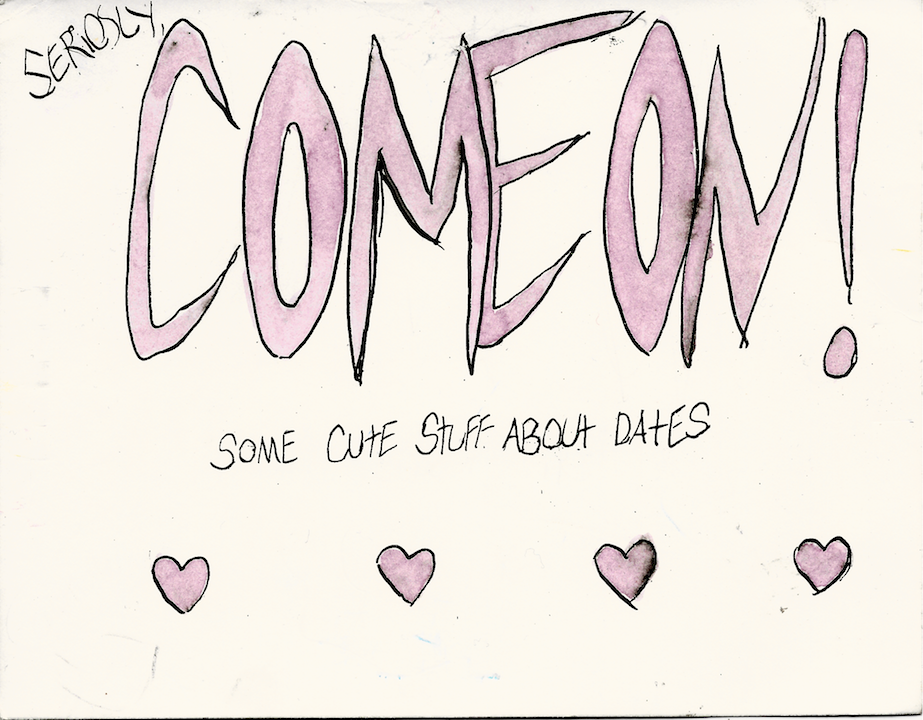 SERIOSLY,
COME ON!
SOME CUTE STUFF ABOUT DATES